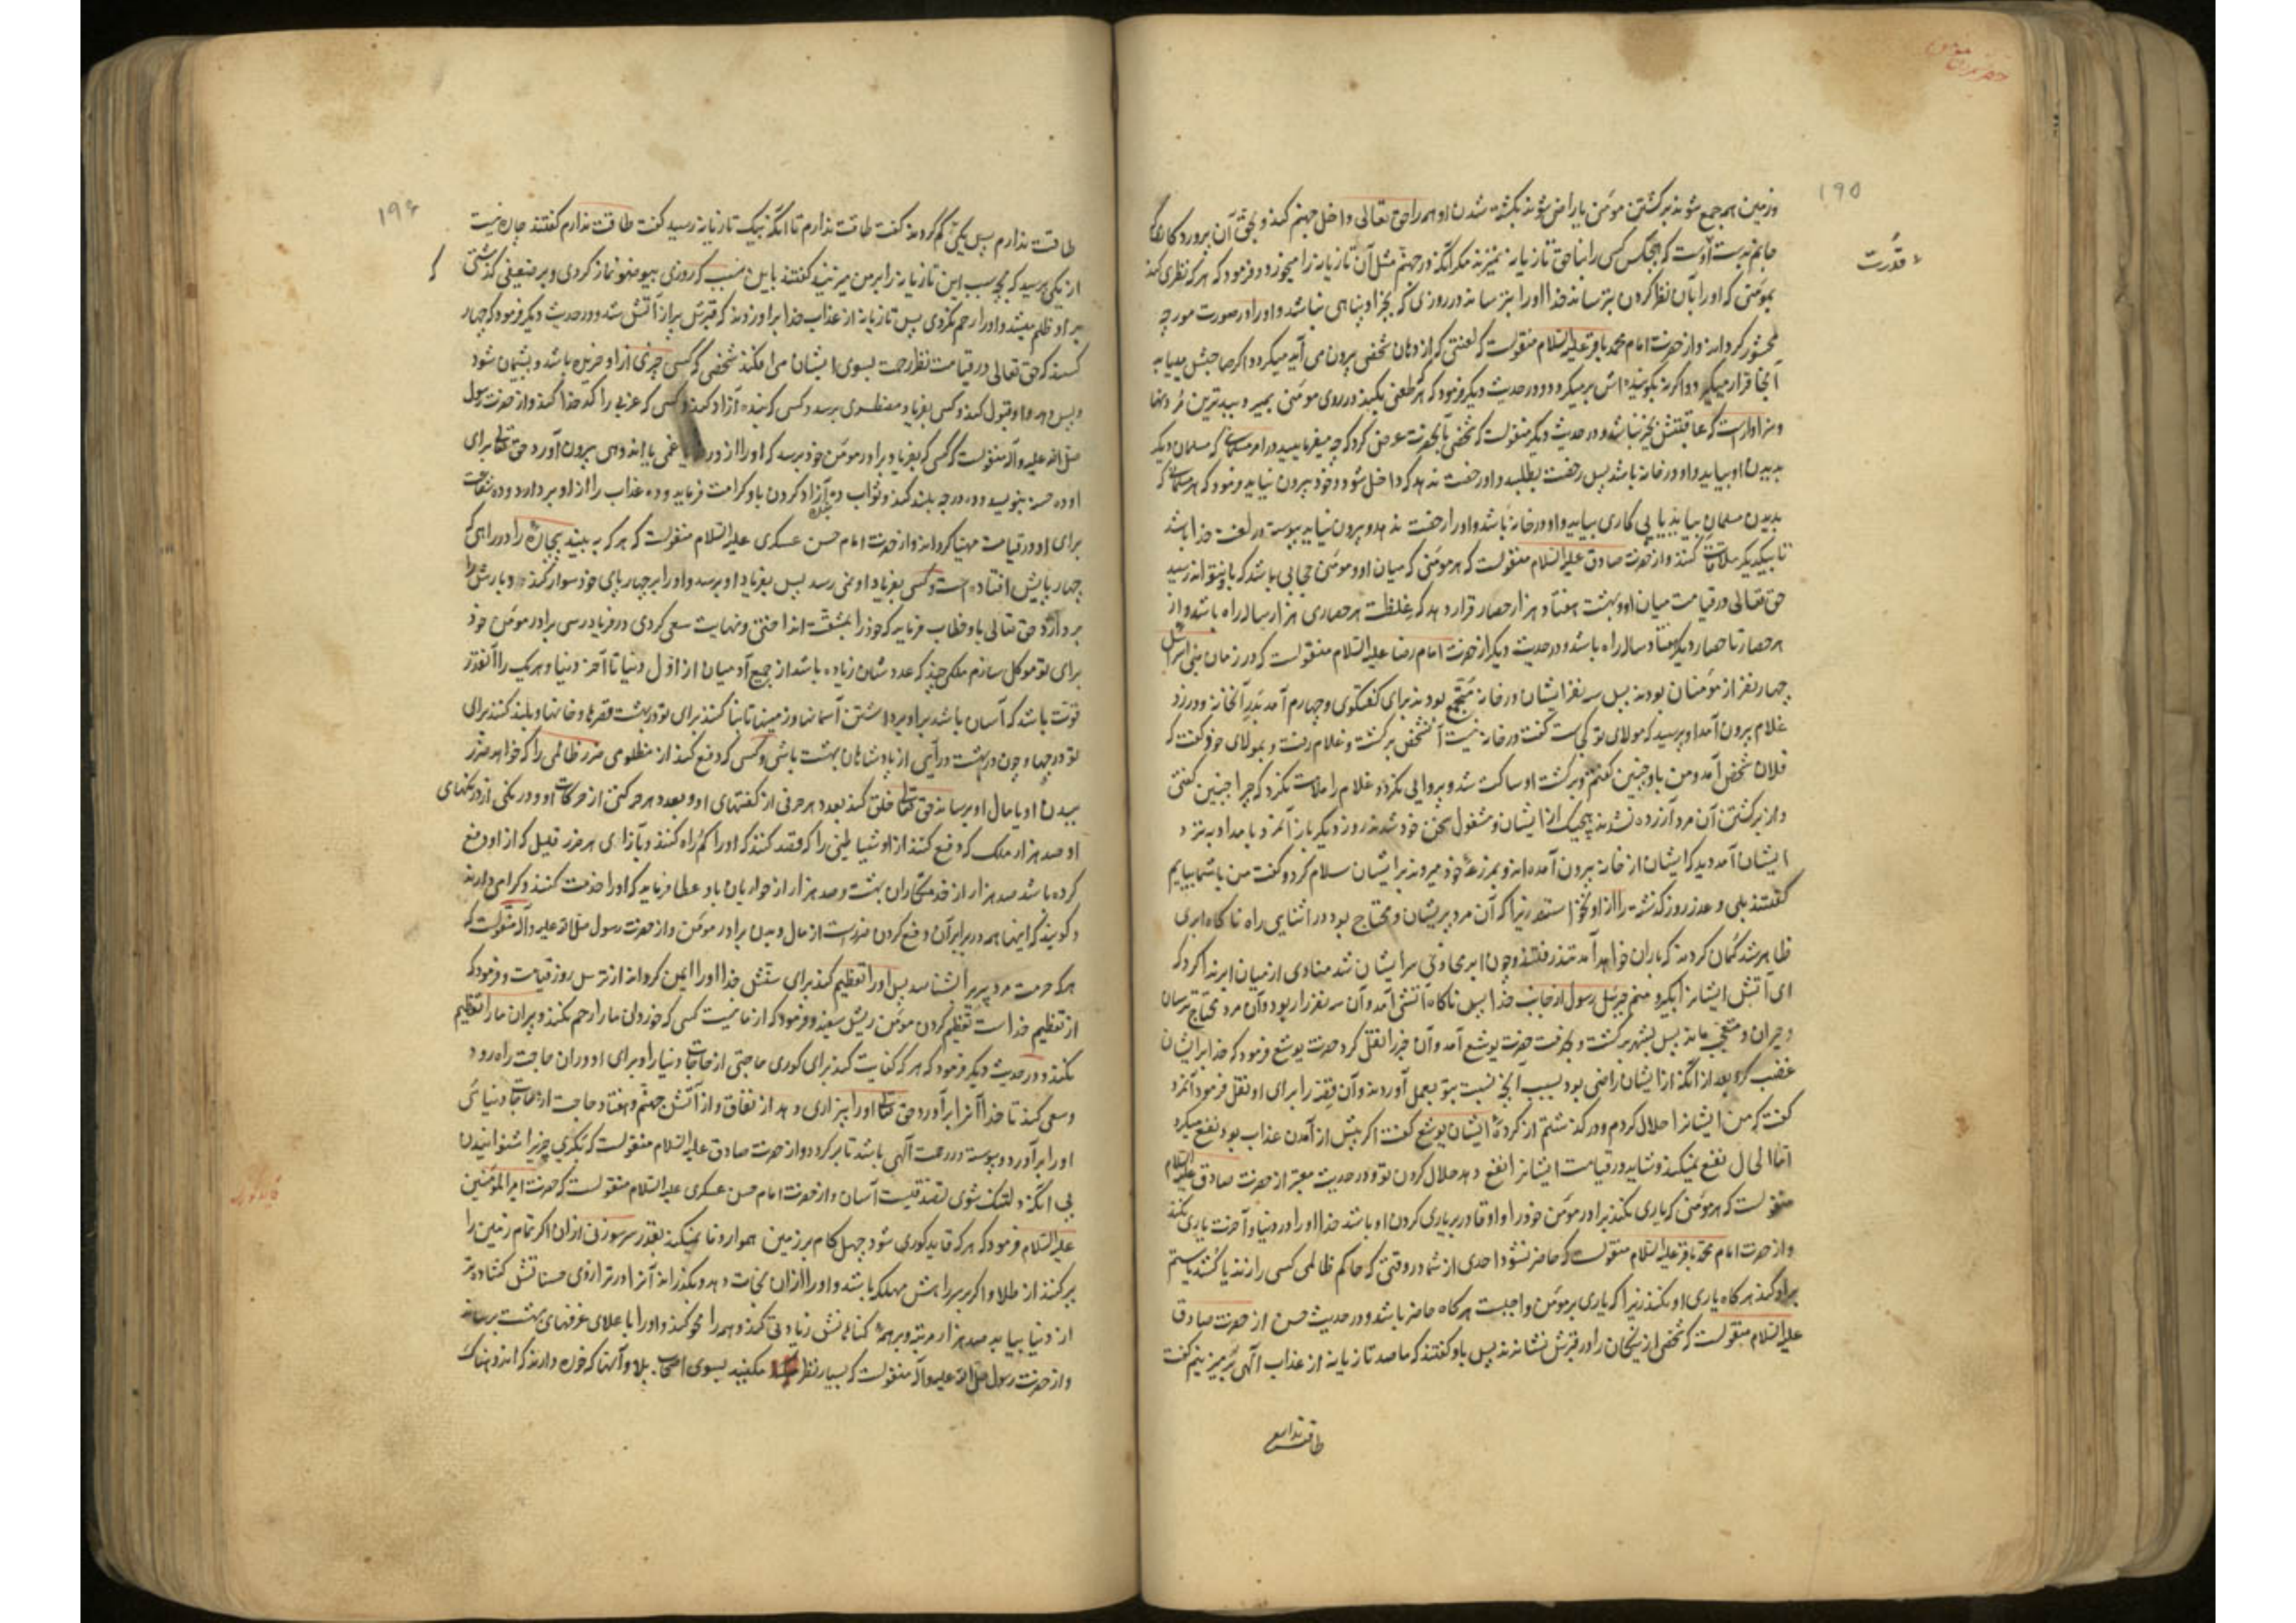 ۱۹۵
وزمین همه جمع شوند بر کشتن مؤمن یا راضی شوند بکشته شدن او همه را حق تعالی داخل جهنم کند و بحق آن پروردگاری که
جانم بدست اوست که هیچکس کسی را بناحق تازیانه نمیزند مگر آنکه در جهنم مثل آن تازیانه را میخورد و فرمود که هر که نظری کند
قدرت
بمؤمنی که او را بآن نظر کردن بترساند خدا او را بترساند در روزی که بجز او پناهی نباشد و او را در صورت مورچه
محشور گرداند و از حضرت امام محمد باقر علیه السلام منقولست که لعنتی که از دهان شخصی بیرون می آید میگردد اگر صاحبش مییابد
آنجا قرار میگیرد و اگر نه بگوینده اش برمیگردد و در حدیث دیگر فرمود که هر که طعنی بکند در روی مؤمنی بمیرد ببدترین مردنها
وسزاوارست که عاقبتش بخیر نباشد و در حدیث دیگر منقولست که شخصی بآنحضرت عرض کرد که چه میفرمایید در امر مسلمانی که مسلمان دیگر
بدیدن او بیاید و او در خانه باشد پس رخصت بطلبد و او رخصت ندهد که داخل شود و خود بیرون نیاید فرمود که هر مسلمانی که
بدیدن مسلمانی بیاید یا پی کاری بیاید و او در خانه باشد و او را رخصت ندهد و بیرون نیاید پیوسته در لعنت خدا باشد
تا بیکدیگر ملاقات کنند و از حضرت صادق علیه السلام منقولست که هر مؤمنی که میان او و مؤمنی حجابی باشد که باو نتواند رسید
حق تعالی در قیامت میان او و بهشت هفتاد هزار حصار قرار دهد که غلظت هر حصاری هزار ساله راه باشد و از
هر حصار تا حصار دیگر هفتاد ساله راه باشد و در حدیث دیگر از حضرت امام رضا علیه السلام منقولست که در زمان بنی اسرائیل
چهار نفر از مؤمنان بودند پس سه نفر ایشان در خانه مجتمع بودند برای گفتگوی و چهارم آمد بدر آنخانه و در زد
غلام بیرون آمد او پرسید که مولای تو کجاست گفت در خانه نیست آنشخص برگشت و غلام رفت و بمولای خود گفت که
فلان شخص آمد و من باو چنین گفتم و برگشت او ساکت شد و پروایی نکرد و غلام را ملامت نکرد که چرا چنین گفتی
و از برگشتن آن مرد آزرده نشدند هیچیک از ایشان و مشغول سخن خود شدند روز دیگر باز آنمرد بامداد بنزد
ایشان آمد دید که ایشان از خانه بیرون آمده اند و بمزرعه خود میروند بر ایشان سلام کرد و گفت من باشما بیایم
گفتند بلی و عذر روز گذشته را از او نخواستند زیرا که آن مرد پریشان و محتاج بود در اثنای راه ناگاه ابری
ظاهر شد گمان کردند که باران خواهد آمد تند رفتند و چون ابر محاذی سر ایشان شد منادی از میان ابر ندا کرد که
ای آتش ایشانرا بگیر و منم جبرئیل رسول از جانب خدا پس ناگاه آتشی آمد و آن سه نفر را ربود و آن مرد محتاج ترسان
و حیران و متعجب ماند پس بشهر برگشت و بخدمت حضرت یوشع آمد و آن خبر را نقل کرد حضرت یوشع فرمود که خدا بر ایشان
غضب کرد بعد از آنکه از ایشان راضی بود بسبب آنچه نسبت بتو بعمل آوردند و آن قصه را برای او نقل فرمود آنمرد
گفت که من ایشانرا حلال کردم و در گذشتم از کرده ایشان یوشع گفت اگر پیش از آمدن عذاب بود نفع میکرد
اما الحال نفع نمیکند و شاید در قیامت ایشانرا نفع دهد حلال کردن تو و در حدیث معتبر از حضرت صادق علیه السلام
منقولست که هر مؤمنی که یاری نکند برادر مؤمن خود را و او قادر بر یاری کردن او باشد خدا او را در دنیا و آخرت یاری نکند
و از حضرت امام محمد باقر علیه السلام منقولست که حاضر نشود احدی از شما در وقتی که حاکم ظالمی کسی را زند یا کشد یا ستم
بر او کند هر گاه یاری او نکند زیرا که یاری بر مؤمن واجبست هر گاه حاضر باشد و در حدیث حسن از حضرت صادق
علیه السلام منقولست که شخصی از نیکان را در قبرش نشاندند پس باو گفتند که ما صد تازیانه از عذاب الهی بر تو میزنیم گفت
طاقت ندارم
۱۹۶
طاقت ندارم پس یکی کم کردند گفت طاقت ندارم تا آنکه بیک تازیانه رسید گفت طاقت ندارم گفتند چاره نیست
از یکی پرسید که بچه سبب این تازیانه را بر من میزنید گفتند باین سبب که روزی بیوضو نماز کردی و بر ضعیفی گذشتی که
بر او ظلم میشد و او را رحم نکردی پس تازیانه از عذاب خدا بر او زدند که قبرش پر از آتش شد و در حدیث دیگر فرمود که چهار
کسند که حق تعالی در قیامت نظر رحمت بسوی ایشان می افکند شخصی که کسی چیزی از او خریده باشد و پشیمان شود
و پس دهد و او قبول کند و کسی بفریاد مضطری برسد و کسی که بنده آزاد کند و کسی که عزبی را کدخدا کند و از حضرت رسول
صلی الله علیه و آله منقولست که کسی که بفریاد برادر مؤمن خود برسد که او را از غمی یا اندوهی بیرون آورد حق تعالی برای
او ده حسنه بنویسد و ده درجه بلند کند و ثواب ده بنده آزاد کردن باو کرامت فرماید و ده عذاب را از او بردارد و ده شفاعت
برای او در قیامت مهیا گرداند و از حضرت امام حسن عسکری علیه السلام منقولست که هر که به بیند بیچاره را در راهی که
چهارپایش افتاده است و کسی بفریاد او نمی رسد پس بفریاد او برسد و او را بر چهارپای خود سوار کند و بارش را
بردارد حق تعالی باو خطاب فرماید که خود را بمشقت انداختی و نهایت سعی کردی در فریادرسی برادر مؤمن خود
برای تو موکل سازم ملکی چند که عددشان زیاده باشد از جمیع آدمیان از اول دنیا تا آخر دنیا و هر یک را آنقدر
قوت باشد که آسان باشد بر او برداشتن آسمانها و زمینها تا بنا کنند برای تو در بهشت قصرها و خانها و بلند کنند برای
تو درجها و چون در بهشت درآیی از پادشاهان بهشت باشی و کسی که دفع کند از مظلومی ضرر ظالمی را که خواهد ضرر
ببدن او یا مال او برساند حق تعالی خلق کند بعدد هر حرفی از گفتهای او و بعدد هر حرکتی از حرکات او و درنگی از درنگهای
او صد هزار ملک که دفع کنند از او شیاطینی را که قصد کنند که او را گمراه کنند و بازای هر ضرر قلیل که از او دفع
کرده باشد صد هزار از خدمتکاران بهشت و صد هزار از حوریان باو عطا فرماید که او را خدمت کنند و گرامی دارند
و گویند که اینها همه در برابر آن دفع کردن ضررست از مال و بدن برادر مؤمن و از حضرت رسول صلی الله علیه و آله منقولست که
هر که حرمت مرد پیر را بشناسد پس او را تعظیم کند برای سنش خدا او را ایمن گرداند از ترس روز قیامت و فرمود که
از تعظیم خداست تعظیم کردن مؤمن ریش سفید و فرمود که از ما نیست کسی که خوردان ما را رحم نکند و پیران ما را تعظیم
نکند و در حدیث دیگر فرمود که هر که کفایت کند برای کوری حاجتی از حاجات دنیا را و برای او در آن حاجت راه رود
و سعی کند تا خدا آنرا برآورد حق تعالی او را بیزاری دهد از نفاق و از آتش جهنم و هفتاد حاجت از حاجات دنیای
او را برآورد و پیوسته در رحمت الهی باشد تا برگردد و از حضرت صادق علیه السلام منقولست که بکری چیزی را شنوانیدن
بی آنکه دلتنگ شوی تصدقیست آسان و از حضرت امام حسن عسکری علیه السلام منقولست که حضرت امیر المؤمنین
علیه السلام فرمود که هر که قاید کوری شود چهل گام بر زمین هموار وفا نمیکند بقدر سر سوزنی از آن اگر تمام زمین را
پر کنند از طلا و اگر بر سر راهش مهلکه باشد و او را از آن نجات دهد و بگذراند آنرا در ترازوی حسناتش گشاده تر
از دنیا بیابد صد هزار مرتبه و بر همه گناهانش زیادتی کند و همه را محو کند و او را با علای غرفهای بهشت برساند
و از حضرت رسول صلی الله علیه و آله منقولست که بسیار نظر مکنید بسوی اصحاب بلا و آنها که خوره دارند که اندوهناک